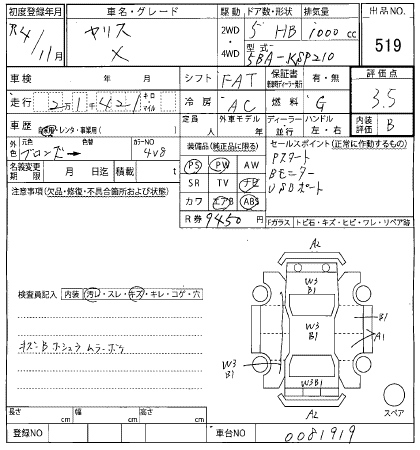 初度登録年月 車名・グレード 駆動 ドア数・形状 排気量 出品NO.
R4/11月 ヤリス X 2WD 4WD 5 HB 1000cc 519
型式 5BA-KSP210
車検 年 月 シフト FAT 保証書 有・無 評価点 3.5
走行 2万1千421 キロ マイル 冷房 AC 燃料 G
車歴 自家用・レンタ・事業用( ) 定員 人 外車モデル 年 ディーラー 並行 ハンドル 左・右 内装評価 B
外色 元色 ブロンズ→ 色替 カラーNO 4V8
装備品(純正品に限る) セールスポイント(正常に作動するもの)
名義変更期限 月 日迄 積載 t
PS PW AW
SR TV ナビ
カワ エアB ABS
Pスタート
Bモニター
USBポート
注意事項(欠品・修復・不具合箇所および状態)
R券 9450円 Fガラス トビ石・キズ・ヒビ・ワレ・リペア跡
A2
検査員記入 内装 汚レ・スレ・キズ・キレ・コゲ・穴
W3 B1
W3 B1
B1
A1
W3 B1
キズB ホシュウ ムラ
W3B1
A2
スペア
長さ cm 幅 cm 高さ cm
登録NO 車台NO 0081919